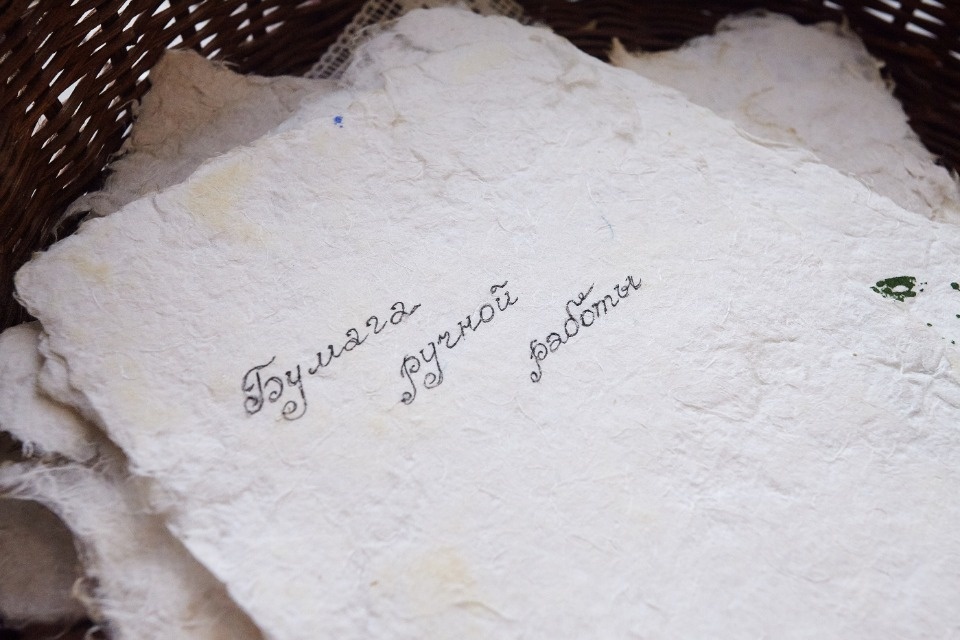 Бумага
ручной
работы